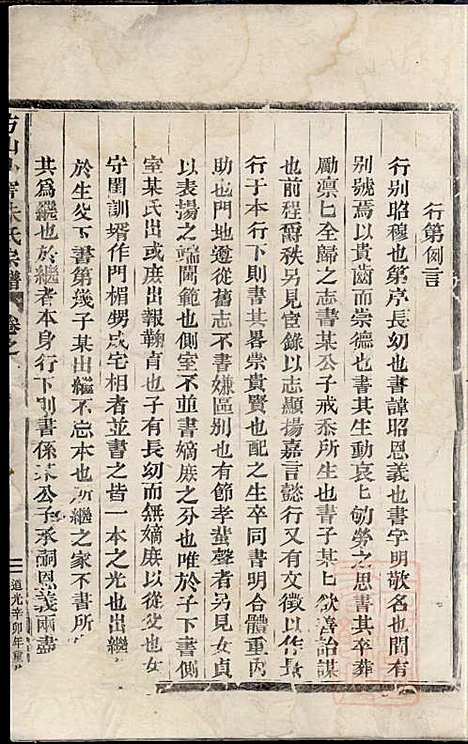 行第例言
行别昭穆也第序長幼也書諱昭恩義也書字明敬名也間有
别號焉以貴齒而崇德也書其生動哀哀劬勞之思書其卒葬
勵凛凛全歸之志書某公子戒忝所生也書子某某欲善詒謀
也前程爵秩另見宦錄以志顯揚嘉言懿行又有文徵以作長
行于本行下則書其畧崇貴賢也配之生卒同書明合體重內
助也門地遵從舊志不書嫌區别也有節孝蜚聲者另見女貞
以表揚之端閫範也側室不並書嫡庶之分也唯於子下書側
室某氏出或庶出報鞠育也子有長幼而無嫡庶以從父也女
守閨訓壻作門楣甥成宅相者並書之皆一本之光也出繼
於生父下書第幾子某出繼不忘本也所繼之家不書所
其爲繼也於繼者本身行下則書係某公子承嗣恩義兩盡
朱氏宗譜 卷之
道光辛卯年重